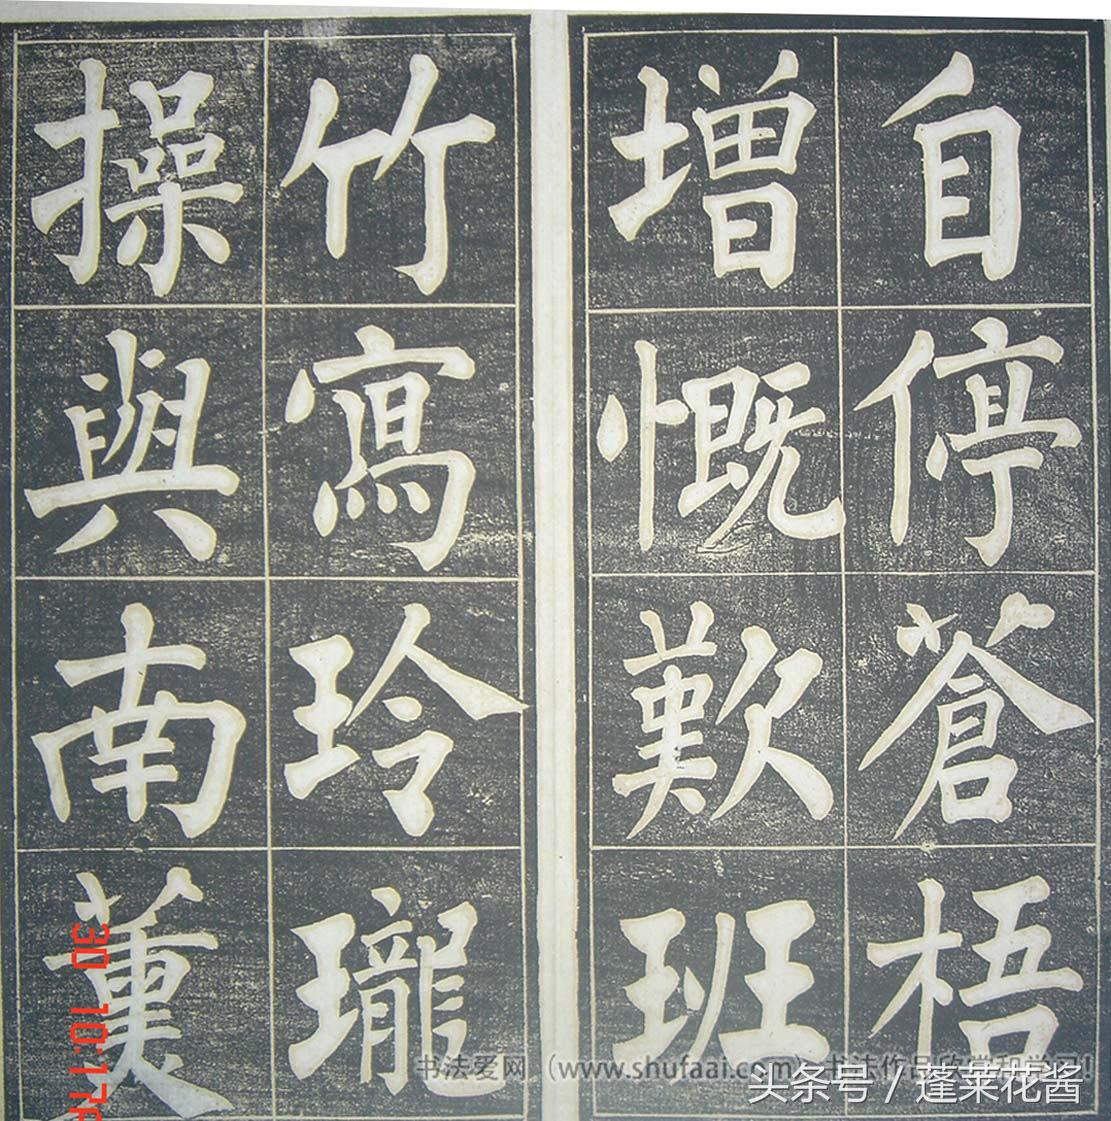 自停蒼梧
增慨歎班
竹寫玲瓏
操與南薫
30 10:17
书法爱网（www.shufaai.com）书法作品欣赏和学习！
头条号 / 蓬莱花酱